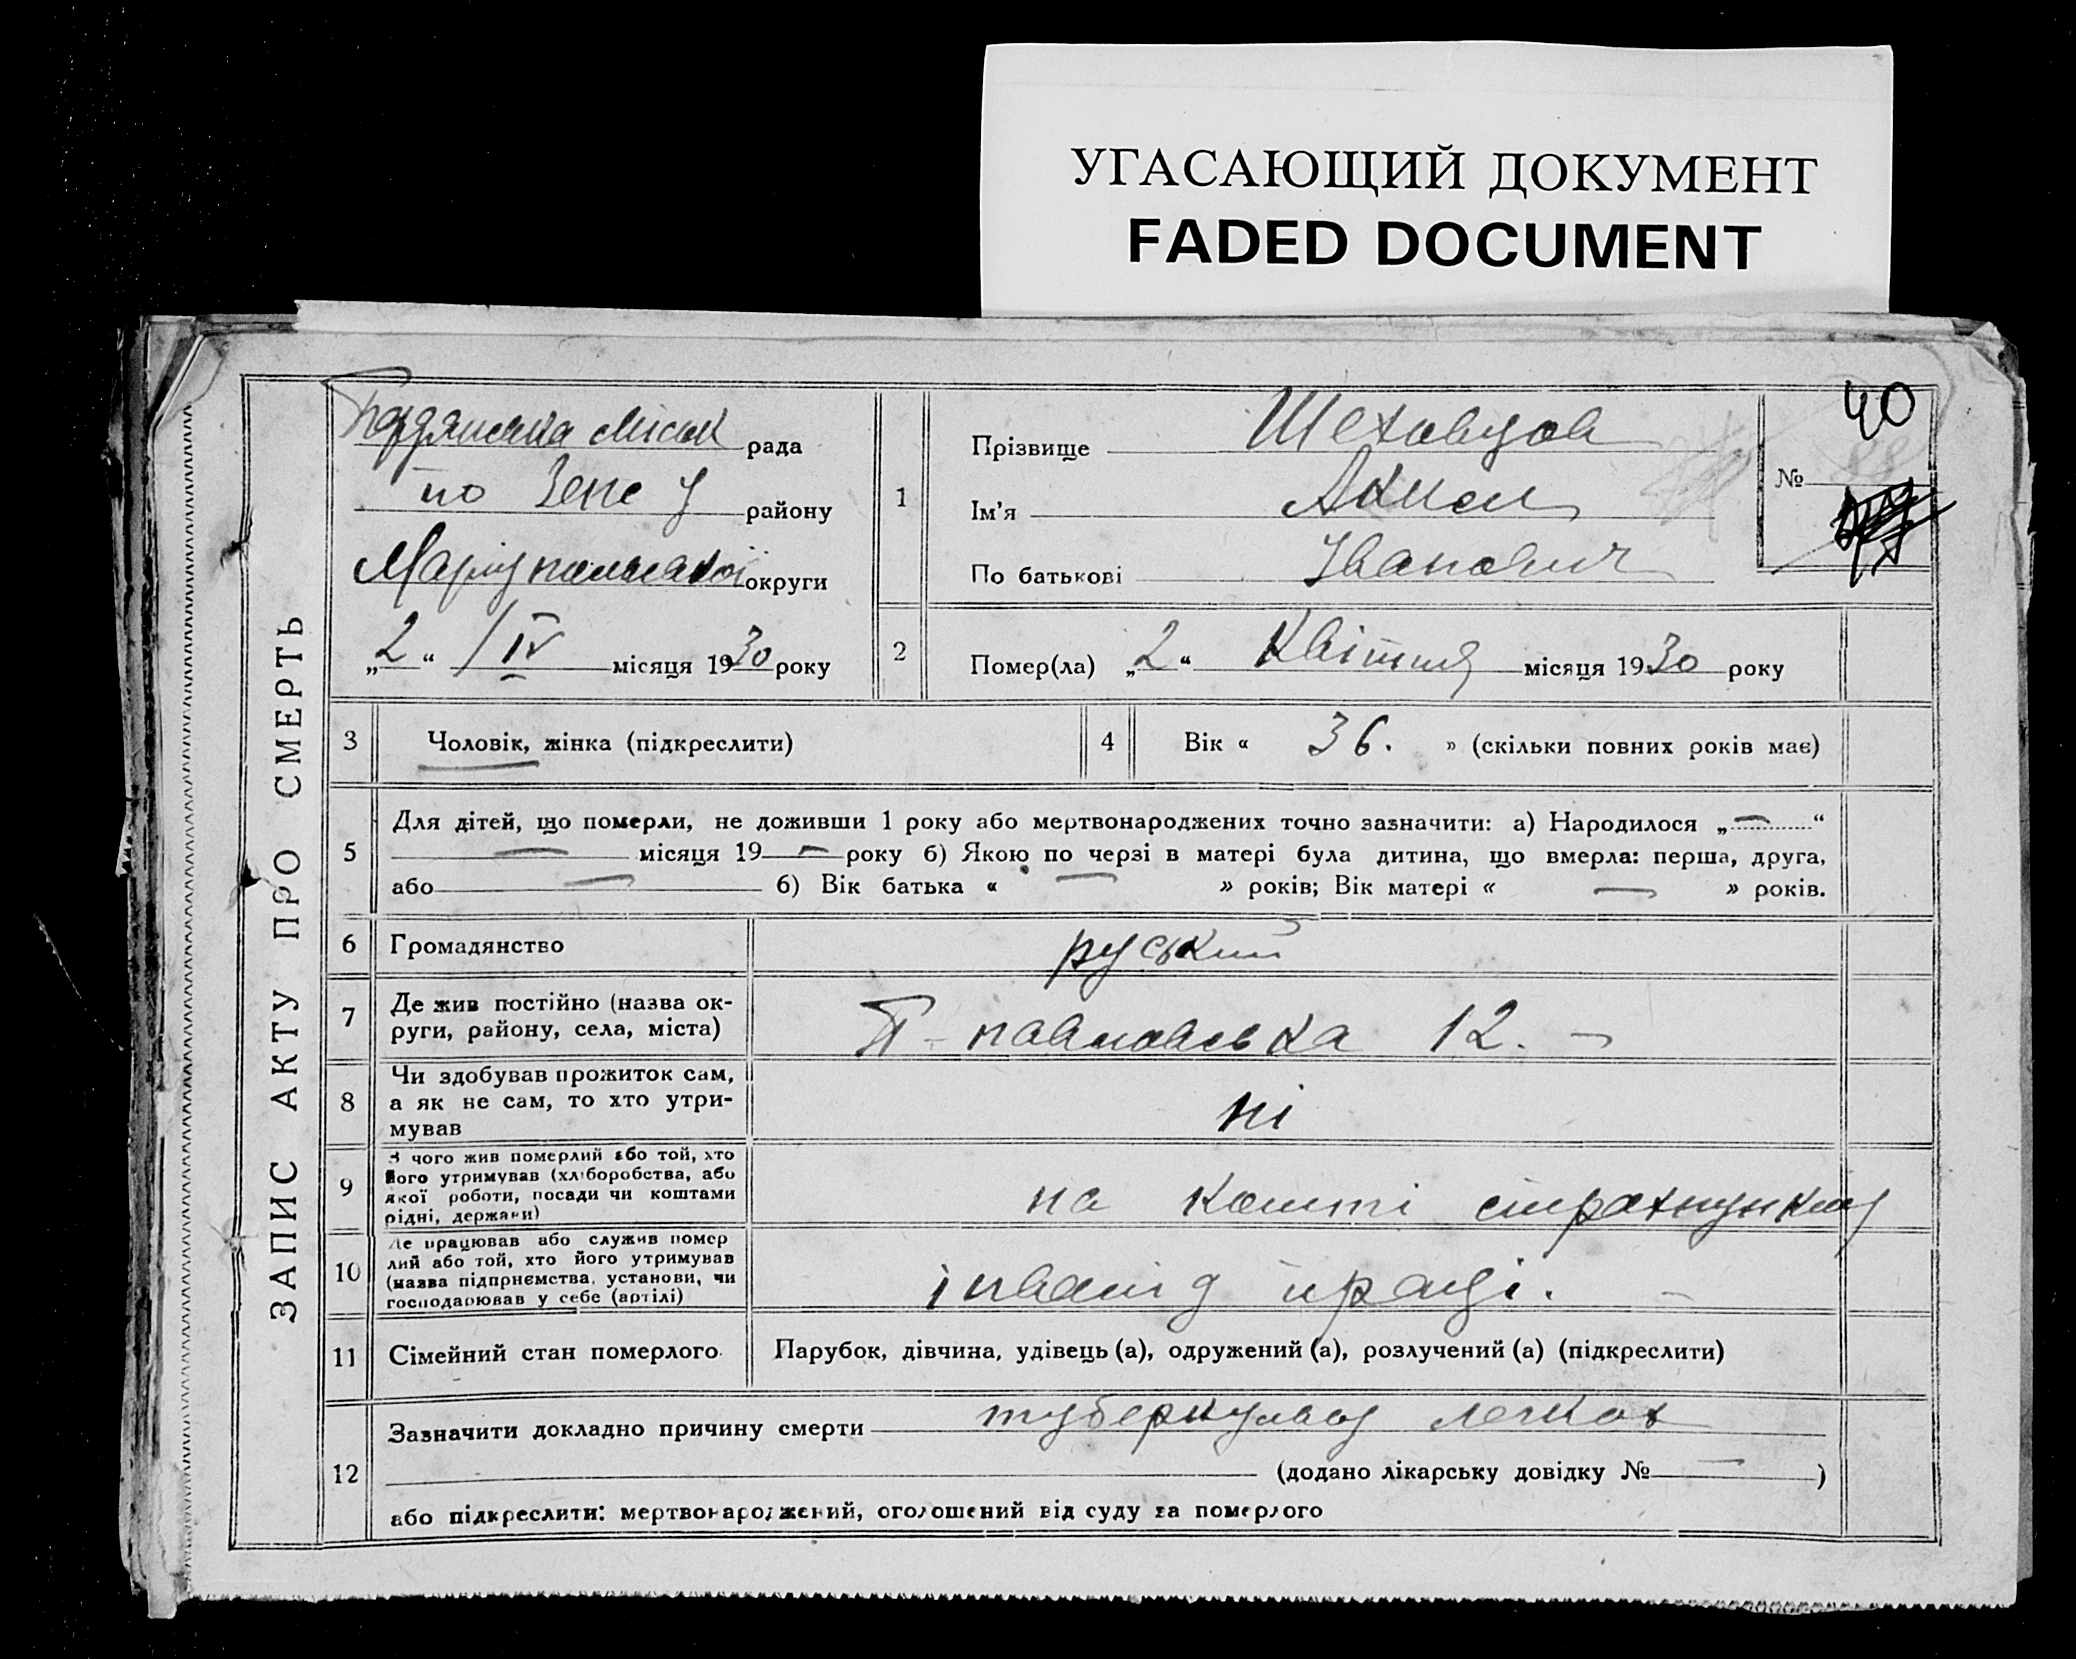 УГАСАЮЩИЙ ДОКУМЕНТ
FADED DOCUMENT
ЗАПИС АКТУ ПРО СМЕРТЬ
Бердянська міськ рада
по Зене у району
Маріупольської округи
„2“ /IV місяця 1930 року
1
Прізвище Шеховцов
Ім'я
По батькові Іванович
№ 40
2
Помер(ла) „2“ Квітня місяця 1930 року
3 Чоловік, жінка (підкреслити)
4 Вік « 36. » (скільки повних років має)
5 Для дітей, що померли, не доживши 1 року або мертвонароджених точно зазначити: а) Народилося „—“
— місяця 19— року б) Якою по черзі в матері була дитина, що вмерла: перша, друга,
або — б) Вік батька « — » років; Вік матері « — » років.
6 Громадянство руський
7 Де жив постійно (назва ок-
руги, району, села, міста)
Павловська 12. —
8 Чи здобував прожиток сам,
а як не сам, то хто утри-
мував
ні
9 З чого жив померлий або той, хто
його утримував (хліборобства, або
якої роботи, посади чи коштами
рідні, держави)
на кошті страхпункту
10 Де працював або служив помер
лий або той, хто його утримував
(назва підприємства, установи, чи
господарював у себе (артілі)
інвалід праці. —
11 Сімейний стан померлого
Парубок, дівчина, удівець (а), одружений (а), розлучений (а) (підкреслити)
12 Зазначити докладно причину смерти туберкульоз легких
(додано лікарську довідку № — )
або підкреслити: мертвонароджений, оголошений від суду за померлого